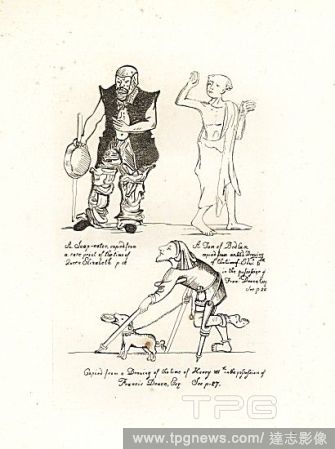 A Soap-eater, copied from
a rare print of the time of
Queen Elizabeth p.
A Tom of Bedlam
copied from an old Drawing
of the time of
in the possession of
Fran Douce, Esq
See p.
Copied from a Drawing of the time of Henry in the possession of
Francis Douce, Esq See p. 27.
TPG
www.tpgnews.com/達志影像